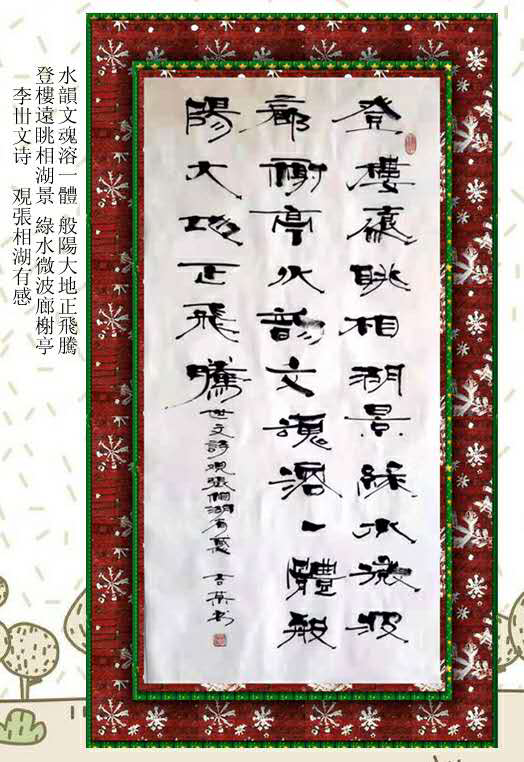 李丗文诗 覌張相湖有感
登樓遠眺相湖景 綠水微波廊榭亭
水韻文魂溶一體 般陽大地正飛騰
登樓遠眺相湖景綠水微波
廊榭亭水韵文魂溶一體般
陽大地正飛騰
世文詩观張相湖有感 书